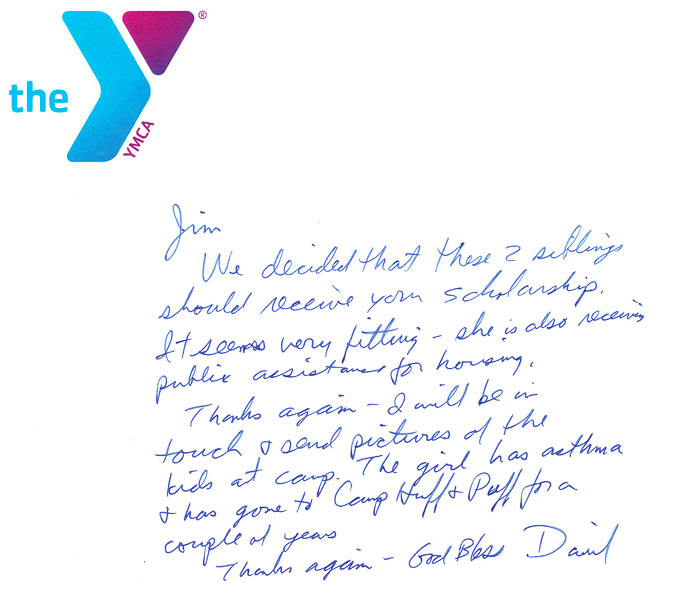 the
YMCA
®
Jim
We decided that these 2 siblings
should receive your scholarship.
It seems very fitting - she is also receiving
public assistance for housing.
Thanks again - I will be in
touch & send pictures of the
kids at camp. The girl has asthma
& has gone to Camp Huff & Puff for a
couple of years
Thanks again - God Bless David